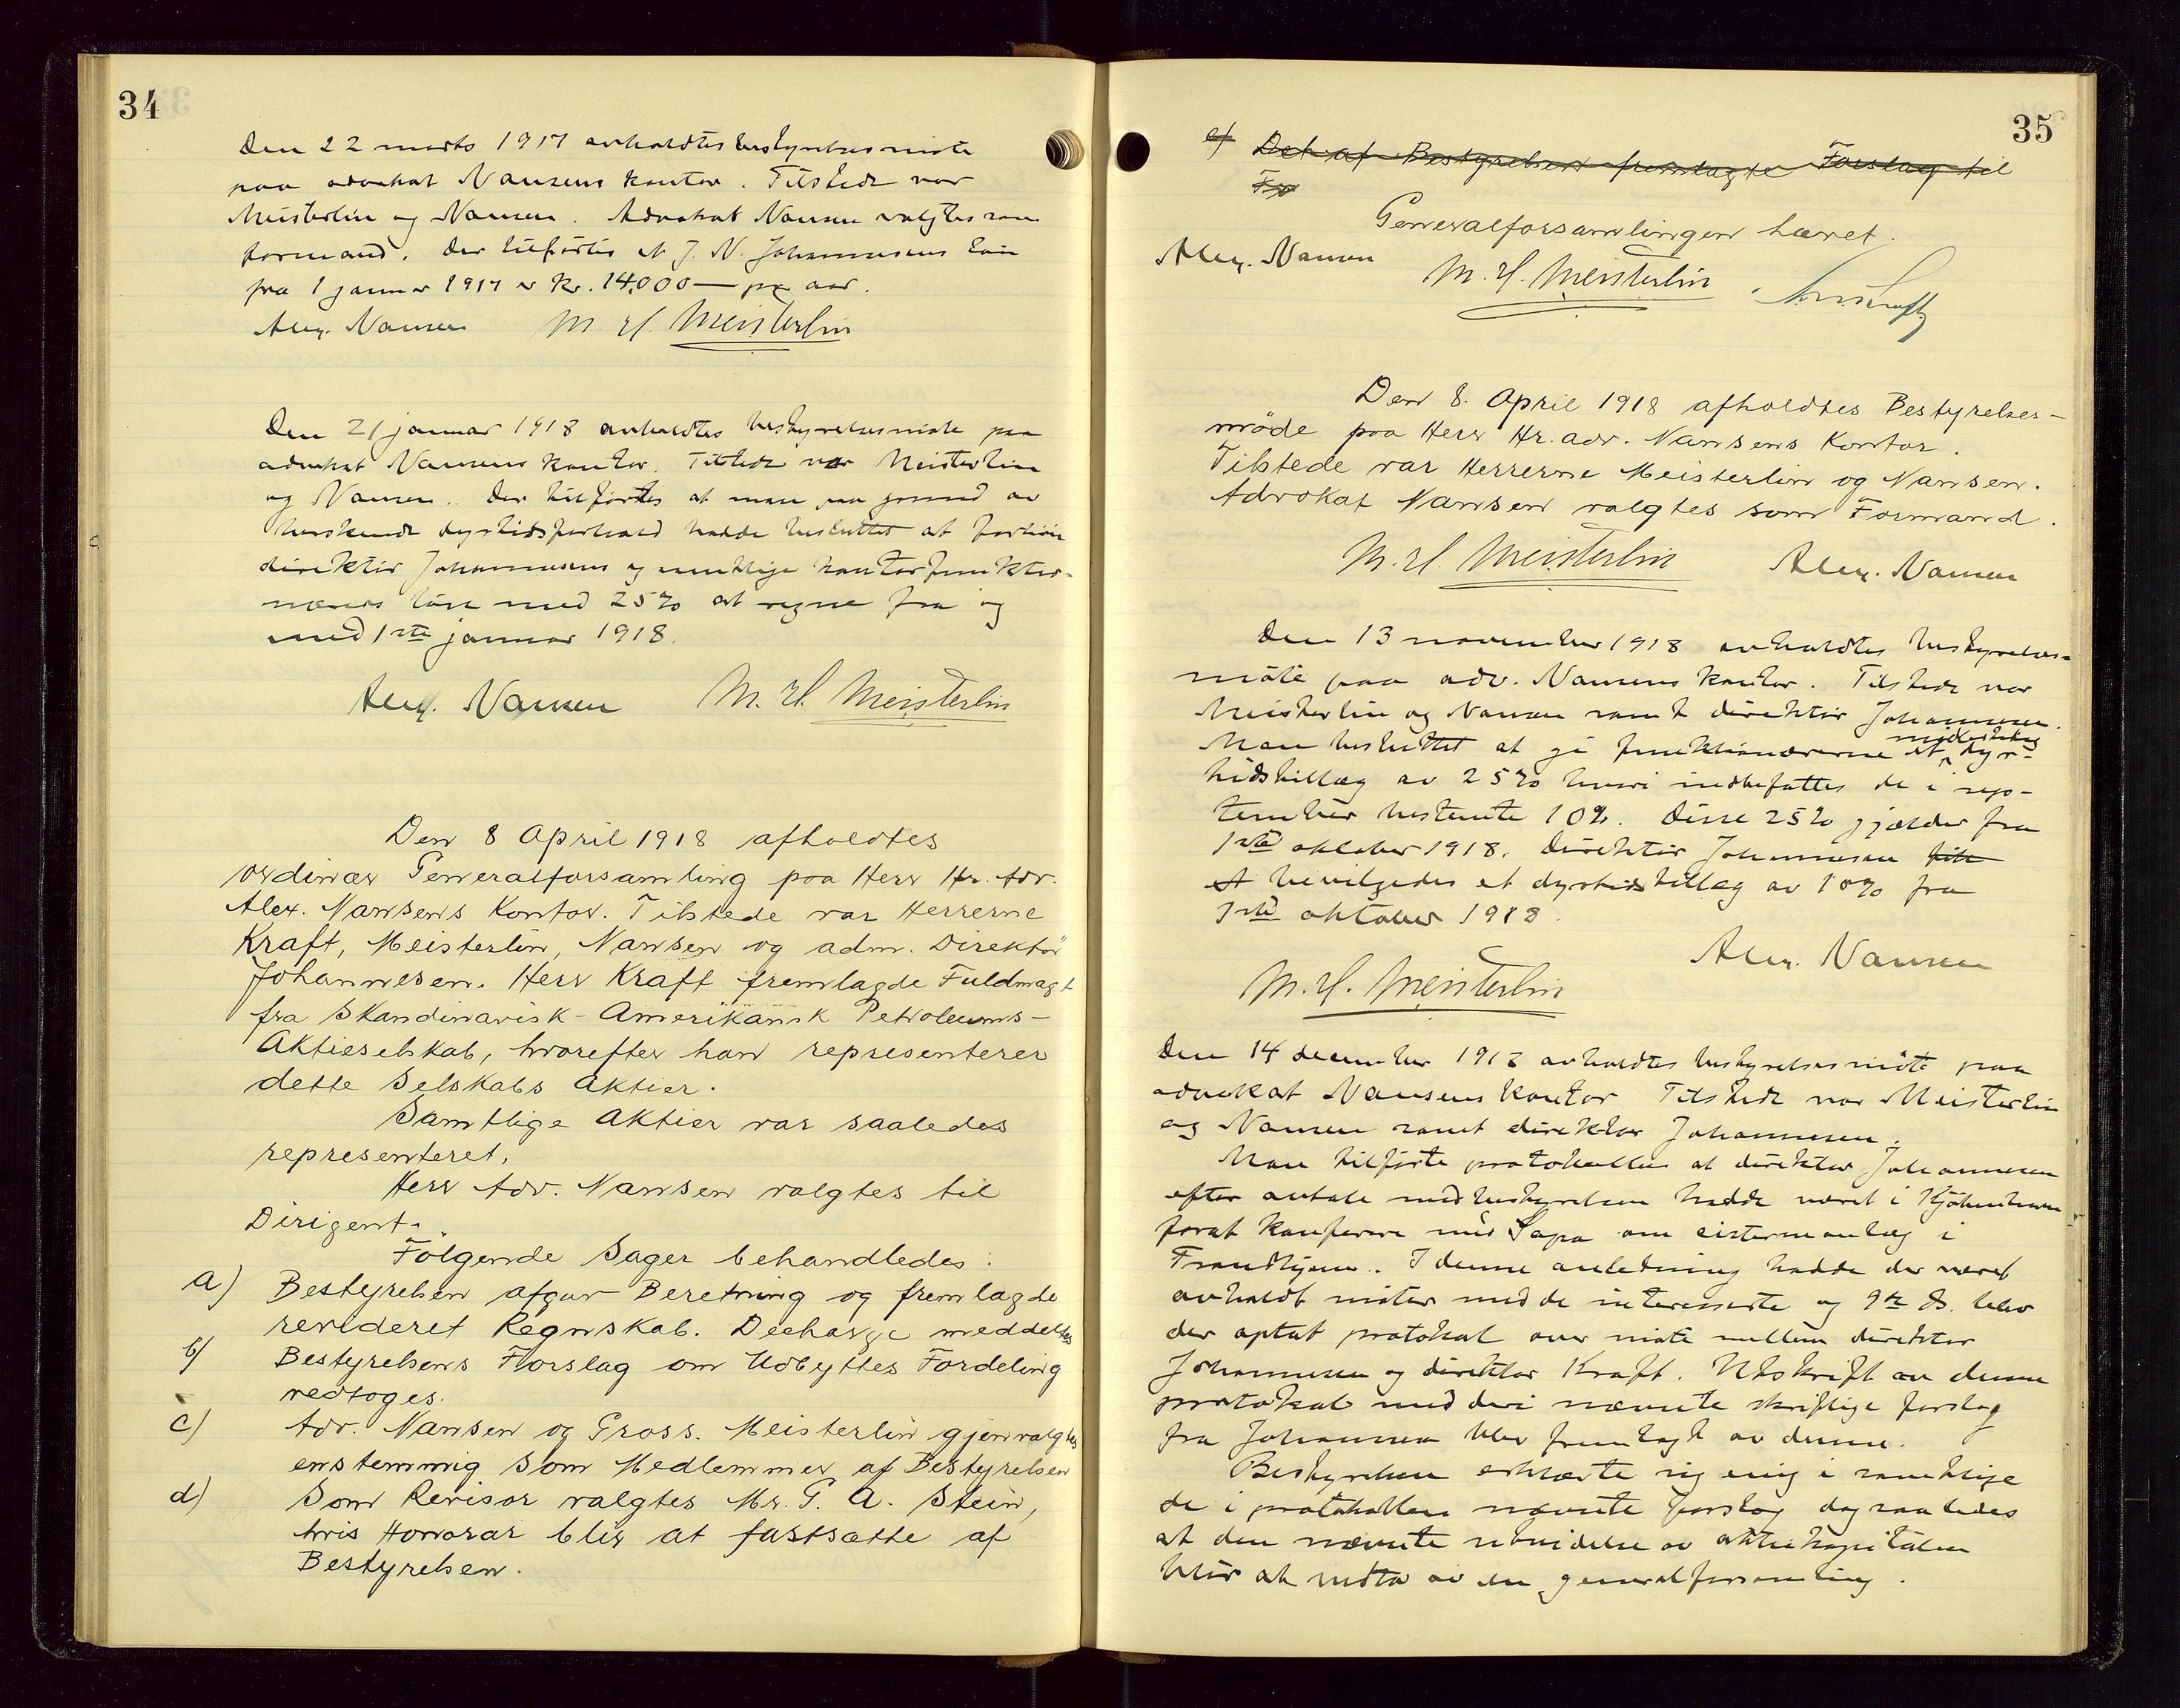 34
Den 22 marts 1917 avholdtes bestyrelsesmøte
paa advokat Nansens kontor. Tilstede var
Meisterlin og Nansen. Advokat Nansen valgtes som
formand. Der tilførtes at J. N. Johannesens løn
fra 1 januar 1917 er Kr. 14,000 — pr aar.
Alex. Nansen M. H. Meisterlin
Den 21 januar 1918 avholdtes bestyrelsesmøte paa
advokat Nansens kontor. Tilstede var Meisterlin
og Nansen. Der tilførtes at man paa grund av
herskende dyrtidsforhold hadde besluttet at forhøie
direktør Johannesens og samtlige kontorfunktio-
nærers løn med 25% at regne fra og
med 1ste januar 1918.
Alex. Nansen M. H. Meisterlin
Den 8 April 1918 afholdtes
ordinær Generalforsamling paa Herr Hr. Adv.
Alex. Nansens Kontor. Tilstede var Herrerne
Kraft, Meisterlin, Nansen og adm. Direktør
Johannesen. Herr Kraft fremlagde Fuldmagt
fra Skandinavisk-Amerikansk Petroleums-
Aktieselskab, hvorefter han representerer
dette Selskabs Aktier.
Samtlige Aktier var saaledes
representeret.
Herr Adv. Nansen valgtes til
Dirigent.
Følgende Sager behandledes:
a) Bestyrelsen afgav Beretning og fremlagde
revideret Regnskab. Decharge meddeltes
b) Bestyrelsens Forslag om Udbyttes Fordeling
vedtoges.
c) Adv. Nansen og Gross. Meisterlin gjenvalgtes
enstemmig som Medlemmer af Bestyrelsen
d) Som Revisor valgtes Mr. G. A. Stein,
hvis Honorar blir at fastsætte af
Bestyrelsen.
35
e) Det af Bestyrelsen fremlagte Forslag til
Fo
Generalforsamlingen hævet.
Alex. Nansen M. H. Meisterlin
Den 8. April 1918 afholdtes Bestyrelses-
møde paa Herr Hr. adv. Nansens Kontor.
Tilstede var Herrerne Meisterlin og Nansen.
Advokat Nansen valgtes som Formand.
M. H. Meisterlin Alex. Nansen
Den 13 november 1918 avholdtes bestyrelses-
møte paa adv. Nansens kontor. Tilstede var
Meisterlin og Nansen samt direktør Johannesen.
Man besluttet at gi funktionærerne et midlertidig dyr-
tidstillæg av 25% hvori indbefattes de i sep-
tember bestemte 10%. Disse 25% gjælder fra
1ste oktober 1918. Direktør Johannesen fik
et bevilgedes et dyrtidstillæg av 10% fra
1ste oktober 1918.
Alex. Nansen
M. H. Meisterlin
Den 14 december 1918 avholdtes bestyrelsesmøte paa
advokat Nansens kontor Tilstede var Meisterlin
og Nansen samt direktør Johannesen.
Man tilførte protokollen at direktør Johannesen
efter avtale med bestyrelsen hadde været i Kjøbenhavn
forat konferere med Sapa om cisterneanlæg i
Trondhjem. I denne anledning hadde der været
avholdt møter med de interesserte og 9de ds. blev
der optat protokol over møte mellem direktør
Johannesen og direktør Kraft. Utskrift av denne
protokol med deri nævnte skriftlige forslag
fra Johannesen blev fremlagt av denne.
Bestyrelsen erklærte sig enig i samtlige
de i protokollen nævnte forslag dog saaledes
at den nævnte utvidelse av aktiekapitalen
blir at vedta av en generalforsamling.